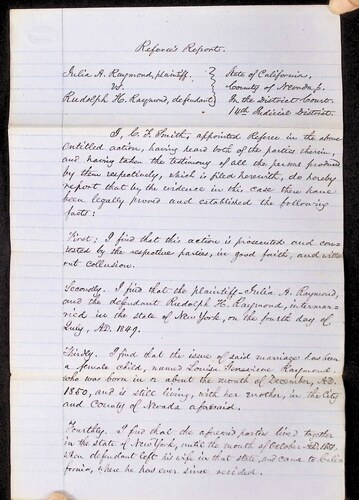 Referee's Report.
Julia A. Raymond, plaintiff. } State of California,
vs. } County of Nevada, ss.
Rudolph H. Raymond, defendant } In the District Court
14th Judicial District.
I, C. F. Smith, appointed Referee in the above
entitled action, having heard both of the parties therein,
and having taken the testimony of all the persons produced
by them respectively, which is filed herewith, do hereby
report that by the evidence in this case there have
been legally proved and established the following
facts:
First: I find that this action is prosecuted and con-
tested by the respective parties, in good faith, and with-
out collusion.
Secondly. I find that the plaintiff Julia A. Raymond,
and the defendant Rudolph H. Raymond, intermar-
ried in the State of New York, on the fourth day of
July, A.D. 1849.
Thirdly. I find that the issue of said marriage has been
a female child, named Louisa Raymond.
who was born in or about the month of December, A.D.
1850, and is still living, with her mother, in the City
and County of Nevada aforesaid.
Fourthly. I find that the aforesaid parties lived together
in the State of New York, until the month of October A.D.
when defendant left his wife in that state, and came to Cali-
fornia, where he has ever since resided.